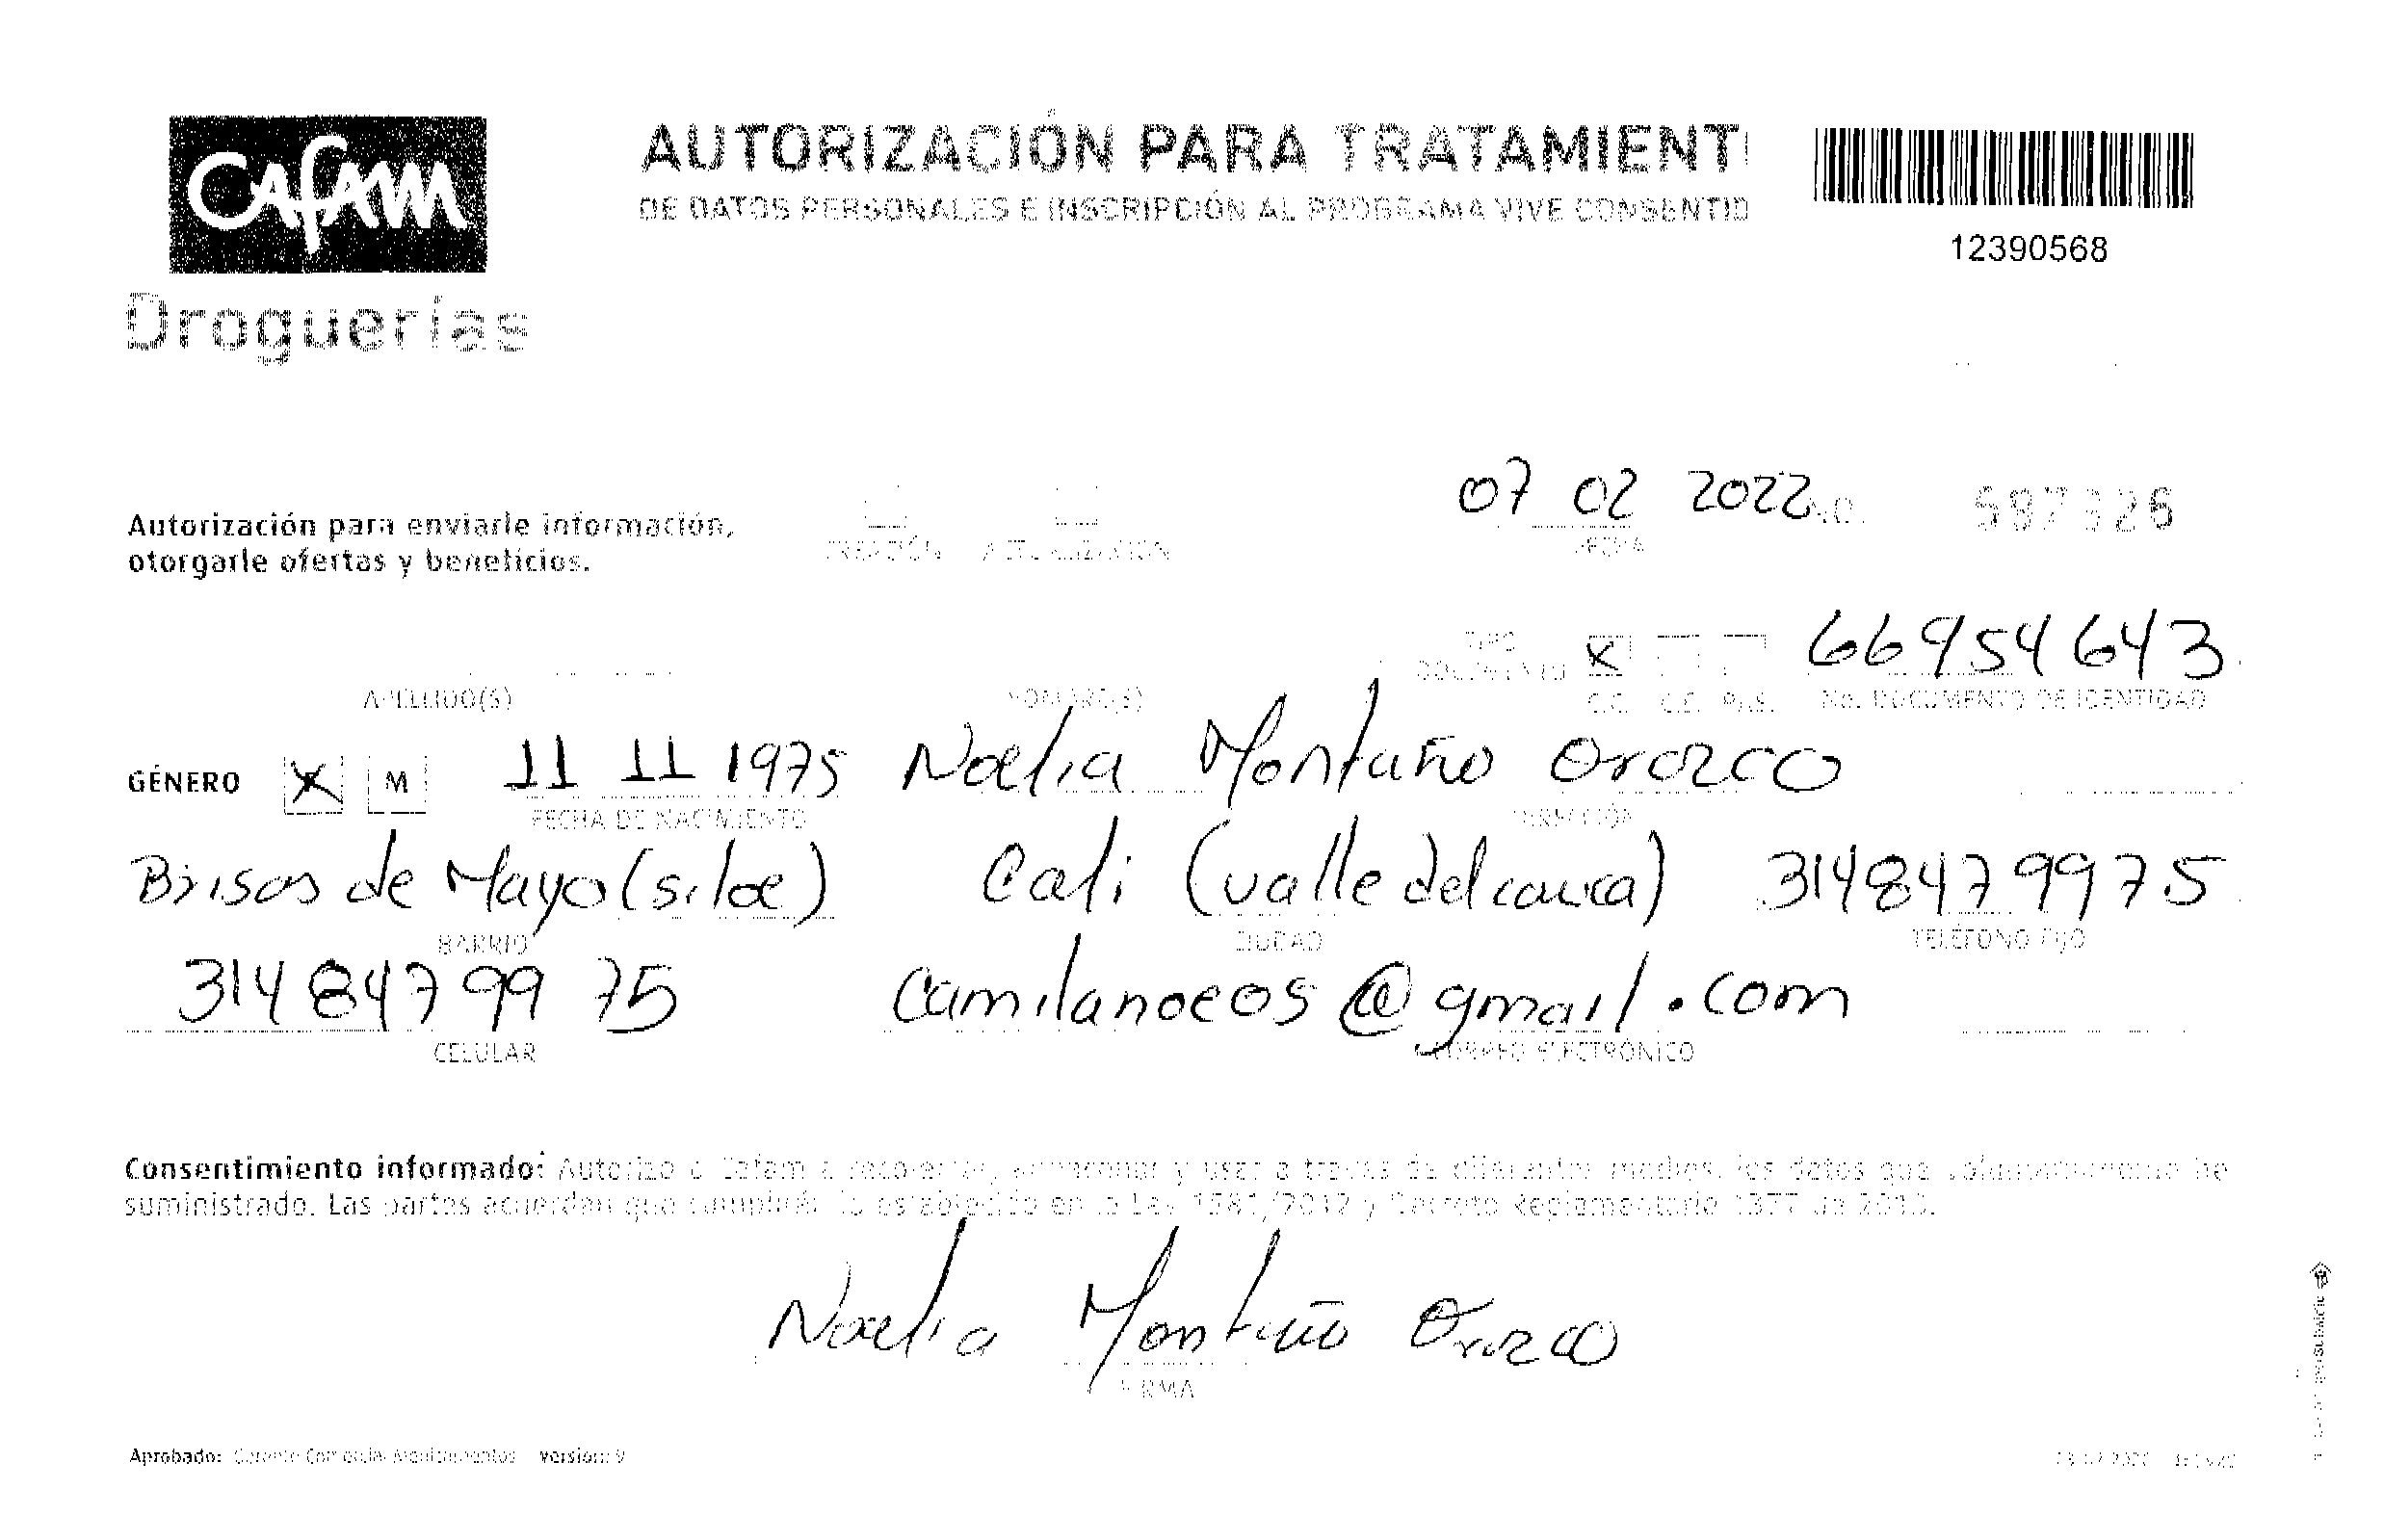 Cafam
Droguerías
AUTORIZACIÓN PARA TRATAMIENT
DE DATOS PERSONALES E INSCRIPCIÓN AL PROGRAMA VIVE CONSENTID
12390568
Autorización para enviarle información,
otorgarle ofertas y beneficios.
CREACIÓN ACTUALIZACIÓN
07 02 2022 NO. 597326
FECHA
TIPO
DOCUMENTO X 66954643
APELLIDO(S) NOMBRE(S) C.C. C.E. PAS. No. DOCUMENTO DE IDENTIDAD
GÉNERO X M 11 11 1975 Noelia Montaño Orozco
FECHA DE NACIMIENTO DIRECCIÓN
Brisas de Mayo (siloe) Cali (valle del cauca) 3148479975
BARRIO CIUDAD TELÉFONO FIJO
3148479975 camilanoeos@gmail.com
CELULAR CORREO ELECTRÓNICO
Consentimiento informado: Autorizo a Cafam a recolectar, almacenar y usar a través de diferentes medios, los datos que voluntariamente he
suministrado. Las partes acuerdan que cumplirán lo establecido en la Ley 1581/2012 y Decreto Reglamentario 1377 de 2013.
Noelia Montaño Orozco
FIRMA
Aprobado: Gerente Comercial Medicamentos Versión: 9